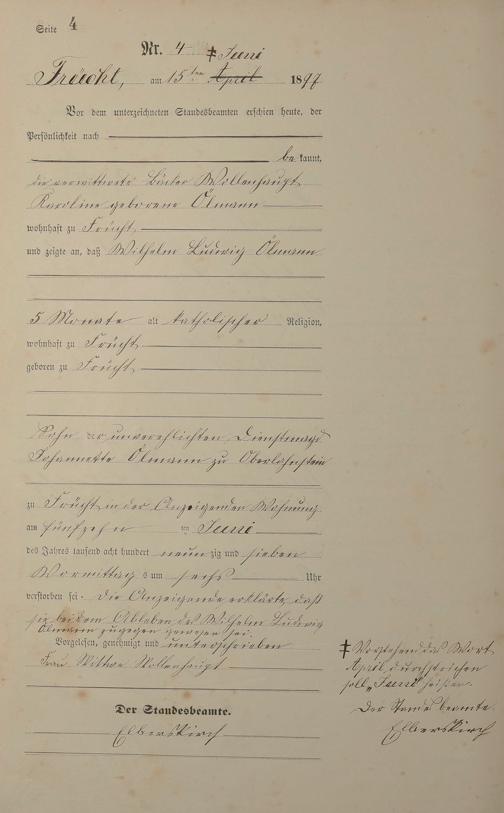 Seite 4
Nr. 4
‡ Juni
Frücht, am 15ten April 1897
Vor dem unterzeichneten Standesbeamten erschien heute, der
Persönlichkeit nach
be kannt,
die verwittwete Bäcker Wollenhaupt
Karoline geborene Ölmann
wohnhaft zu Frücht
und zeigte an, daß Wilhelm Ludwig Ölmann
5 Monate alt katholischer Religion,
wohnhaft zu Frücht
geboren zu Frücht
Sohn der unverehlichten Dienstmagd
Johannette Ölmann zu Oberlahnstein
zu Frücht, in der Anzeigenden Wohnung
am fünfzehn ten Juni
des Jahres tausend acht hundert neun zig und sieben
Vormittag s um sechs Uhr
verstorben sei. Die Anzeigende erklärte, daß
sie bei dem Ableben des Wilhelm Ludwig
Ölmann zugegen gewesen sei.
Vorgelesen, genehmigt und unterschrieben
Frau Wittwe Wollenhaupt
‡ Vorstehend das Wort
April durchstrichen
soll „Juni" heißen.
Der Standesbeamte.
Elberskirch
Der Standesbeamte.
Elberskirch